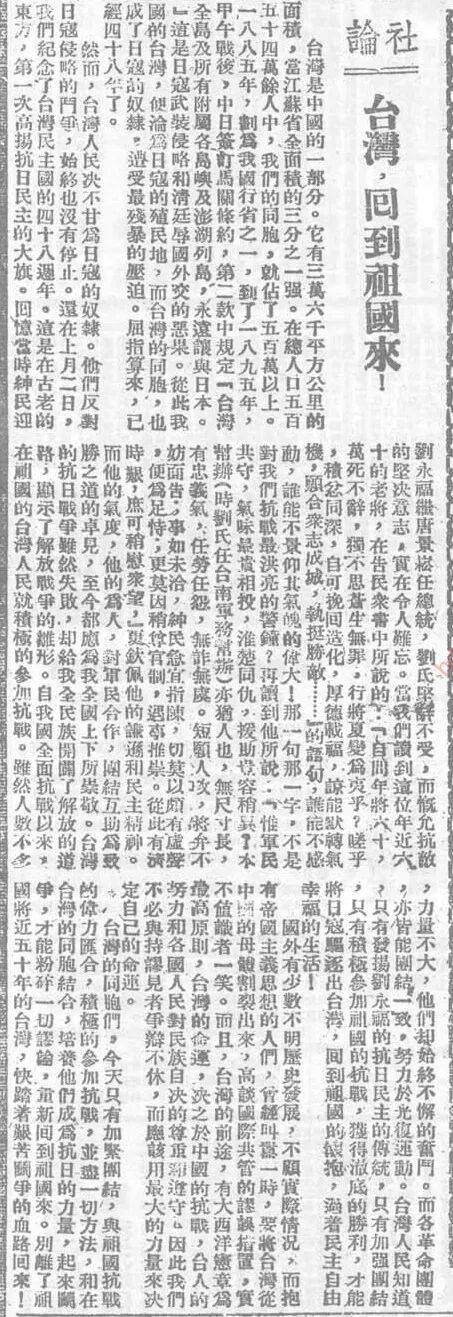 社論
台灣，回到祖國來！
台灣是中國的一部分。它有三萬六千平方公里的
面積，當江蘇省全面積的三分之一强。在總人口五百
五十四萬餘人中，我們的同胞，就佔了五百萬以上。
一八八五年，劃爲我國行省之一，到了一八九五年，
甲午戰後，中日簽訂馬關條約，第二款中規定「台灣
全島及所有附屬各島嶼及澎湖列島，永遠讓與日本。
」這是日寇武裝侵略和清廷辱國外交的惡果。從此我
國的台灣，便淪爲日寇的殖民地，而台灣的同胞，也
成了日寇的奴隸。遭受最殘暴的壓迫。屈指算來，已
經四十八年了。
然而，台灣人民决不甘爲日寇的奴隸。他們反對
日寇侵略的鬥爭，始終也沒有停止。還在上月二日，
我們紀念了台灣民主國的四十八週年。這是在古老的
東方，第一次高揚抗日民主的大旗。回憶當時紳民迎
劉永福繼唐景崧任總統，劉氏堅辭不受，而慨允抗敵
的堅决意志，實在令人難忘。當我們讀到這位年近六
十的老將，在告民衆書中所說的：「自問年將六十，
萬死不辭，獨不思蒼生無罪，行將夏變爲夷乎？嗟乎
，積忿同深，自可挽回造化，厚德載福，諒能默轉氣
機，願合衆志成城，執挺勝敵……」的語句，誰能不感
動，誰能不景仰其氣魄的偉大！那一句那一字，不是
對我們抗戰最洪亮的警鐘？再讀到他所說：「惟軍民
共守，氣味最貴相投，淮楚同仇，援助豈容稍異？本
幫辦（時劉氏任台南軍務幫辦）亦猶人也，無尺寸長，
有忠義氣，任勞任怨，無詐無虞。短願人攻，將弁不
妨面告，事如未洽，紳民急宜指陳，切莫以頗有虛聲
，便爲足恃；更莫因稍尊官制，遇事推崇。從此有濟
時艱，庶可稍慰衆望」，更欽佩他的謙遜和民主精神。
而他的氣度，他的爲人，對軍民合作，團結互助爲致
勝之道的卓見，至今都應爲我全國上下所崇敬。台灣
的抗日戰爭雖然失敗，却給我全民族開闢了解放的道
路，顯示了解放戰爭的雛形。自我國全面抗戰以來，
在祖國的台灣人民就積極的參加抗戰。雖然人數不多
，力量不大，他們却始終不懈的奮鬥。而各革命團體
，亦皆能團結一致，努力於光復運動。台灣人民知道
，只有發揚劉永福的抗日民主的傳統，只有加强團結
，只有積極參加祖國的抗戰，獲得澈底的勝利，才能
將日寇驅逐出台灣，回到祖國的懷抱，過着民主自由
幸福的生活！
國外有少數不明歷史發展，不顧實際情况，而抱
有帝國主義思想的人們，曾經叫囂一時，要將台灣從
中國的母體割裂出來，高談國際共管的謬誤措置，實
不值識者一笑。而且，台灣的前途，有大西洋憲章爲
最高原則，台灣的命運，决之於中國的抗戰，台人的
努力和各國人民對民族自决的尊重與遵守。因此我們
不必與持謬見者爭辯不休，而應該用最大的力量來决
定自己的命運。
台灣的同胞們，今天只有加緊團結，與祖國抗戰
的偉力匯合，積極的參加抗戰，並盡一切方法，和在
台灣的同胞結合，培養他們成爲抗日的力量，起來鬭
爭，才能粉碎一切謬論，重新回到祖國來。別離了祖
國將近五十年的台灣，快踏着艱苦鬭爭的血路回來！